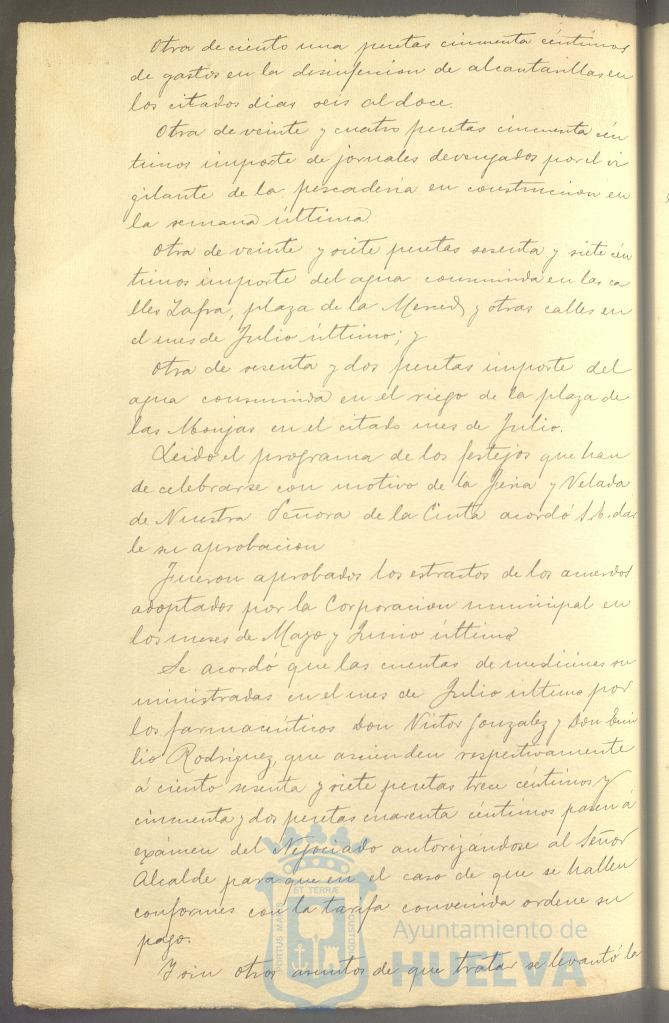 Otra de ciento una pesetas cincuenta céntimos
de gastos en la desinfeccion de alcantarillas en
los citados dias seis al doce.
Otra de veinte y cuatro pesetas cincuenta cén
timos importe de jornales devengados por el vi
gilante de la pescadería en construccion en
la semana última.
Otra de veinte y siete pesetas sesenta y siete cén
timos importe del agua consumida en las ca
lles Zafra, plaza de la Merced y otras calles en
el mes de Julio último; y
Otra de sesenta y dos pesetas importe del
agua consumida en el riego de la plaza de
las Monjas en el citado mes de Julio.
Leido el programa de los festejos que han
de celebrarse con motivo de la Feria y Velada
de Nuestra Señora de la Cinta acordó S.E. dar
le su aprobacion
Fueron aprobados los estractos de los acuerdos
adoptados por la Corporacion municipal en
los meses de Mayo y Junio último
Se acordó que las cuentas de medicinas su
ministradas en el mes de Julio último por
los farmacéuticos Don Víctor Gonzalez y Don
lio Rodriguez, que ascienden respectivamente
á ciento sesenta y siete pesetas trece céntimos y
cincuenta y dos pesetas cuarenta céntimos pasen á
exámen del Negociado autorizándose al Señor
Alcalde para que en el caso de que se hallen
conformes con la tarifa convenida ordene su
pago.
Y sin otros asuntos de que tratar se levantó la
PORTUS MARIS ET TERRÆ CUSTODIA
Ayuntamiento de
HUELVA